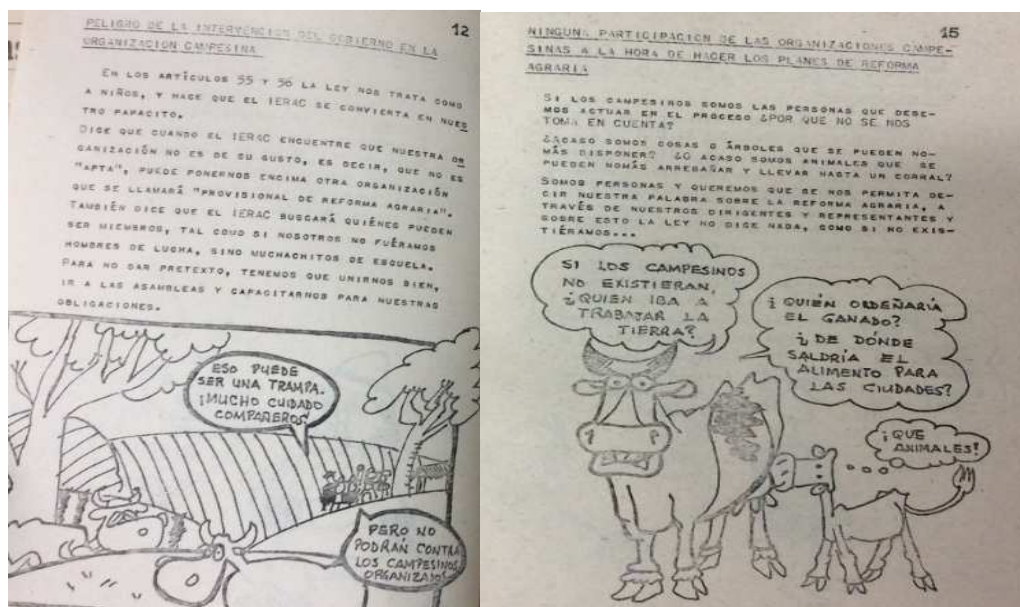 PELIGRO DE LA INTERVENCION DEL GOBIERNO EN LA
ORGANIZACION CAMPESINA
12
EN LOS ARTÍCULOS 55 Y 56 LA LEY NOS TRATA COMO
A NIÑOS, Y HACE QUE EL IERAC SE CONVIERTA EN NUES
TRO PAPACITO.
DICE QUE CUANDO EL IERAC ENCUENTRE QUE NUESTRA OR
GANIZACIÓN NO ES DE SU GUSTO, ES DECIR, QUE NO ES
"APTA", PUEDE PONERNOS ENCIMA OTRA ORGANIZACIÓN
QUE SE LLAMARÁ "PROVISIONAL DE REFORMA AGRARIA".
TAMBIÉN DICE QUE EL IERAC BUSCARÁ QUIÉNES PUEDEN
SER MIEMBROS, TAL COMO SI NOSOTROS NO FUÉRAMOS
HOMBRES DE LUCHA, SINO MUCHACHITOS DE ESCUELA.
PARA NO DAR PRETEXTO, TENEMOS QUE UNIRNOS BIEN,
IR A LAS ASAMBLEAS Y CAPACITARNOS PARA NUESTRAS
OBLIGACIONES.
ESO PUEDE
SER UNA TRAMPA.
¡MUCHO CUIDADO
COMPAÑEROS!
PERO NO
PODRÁN CONTRA
LOS CAMPESINOS
ORGANIZADOS
15
NINGUNA PARTICIPACION DE LAS ORGANIZACIONES CAMPE-
SINAS A LA HORA DE HACER LOS PLANES DE REFORMA
AGRARIA
SI LOS CAMPESINOS SOMOS LAS PERSONAS QUE DEBE-
MOS ACTUAR EN EL PROCESO ¿POR QUE NO SE NOS
TOMA EN CUENTA?
¿ACASO SOMOS COSAS O ÁRBOLES QUE SE PUEDEN NO-
MÁS DISPONER? ¿O ACASO SOMOS ANIMALES QUE SE
PUEDEN NOMÁS ARREBAÑAR Y LLEVAR HASTA UN CORRAL?
SOMOS PERSONAS Y QUEREMOS QUE SE NOS PERMITA DE-
CIR NUESTRA PALABRA SOBRE LA REFORMA AGRARIA, A
TRAVÉS DE NUESTROS DIRIGENTES Y REPRESENTANTES Y
SOBRE ESTO LA LEY NO DICE NADA, COMO SI NO EXIS-
TIÉRAMOS...
SI LOS CAMPESINOS
NO EXISTIERAN,
¿QUIEN IBA A
TRABAJAR LA
TIERRA?
¿QUIÉN ORDEÑARÍA
EL GANADO?
¿DE DÓNDE
SALDRÍA EL
ALIMENTO PARA
LAS CIUDADES?
¡QUE
ANIMALES!